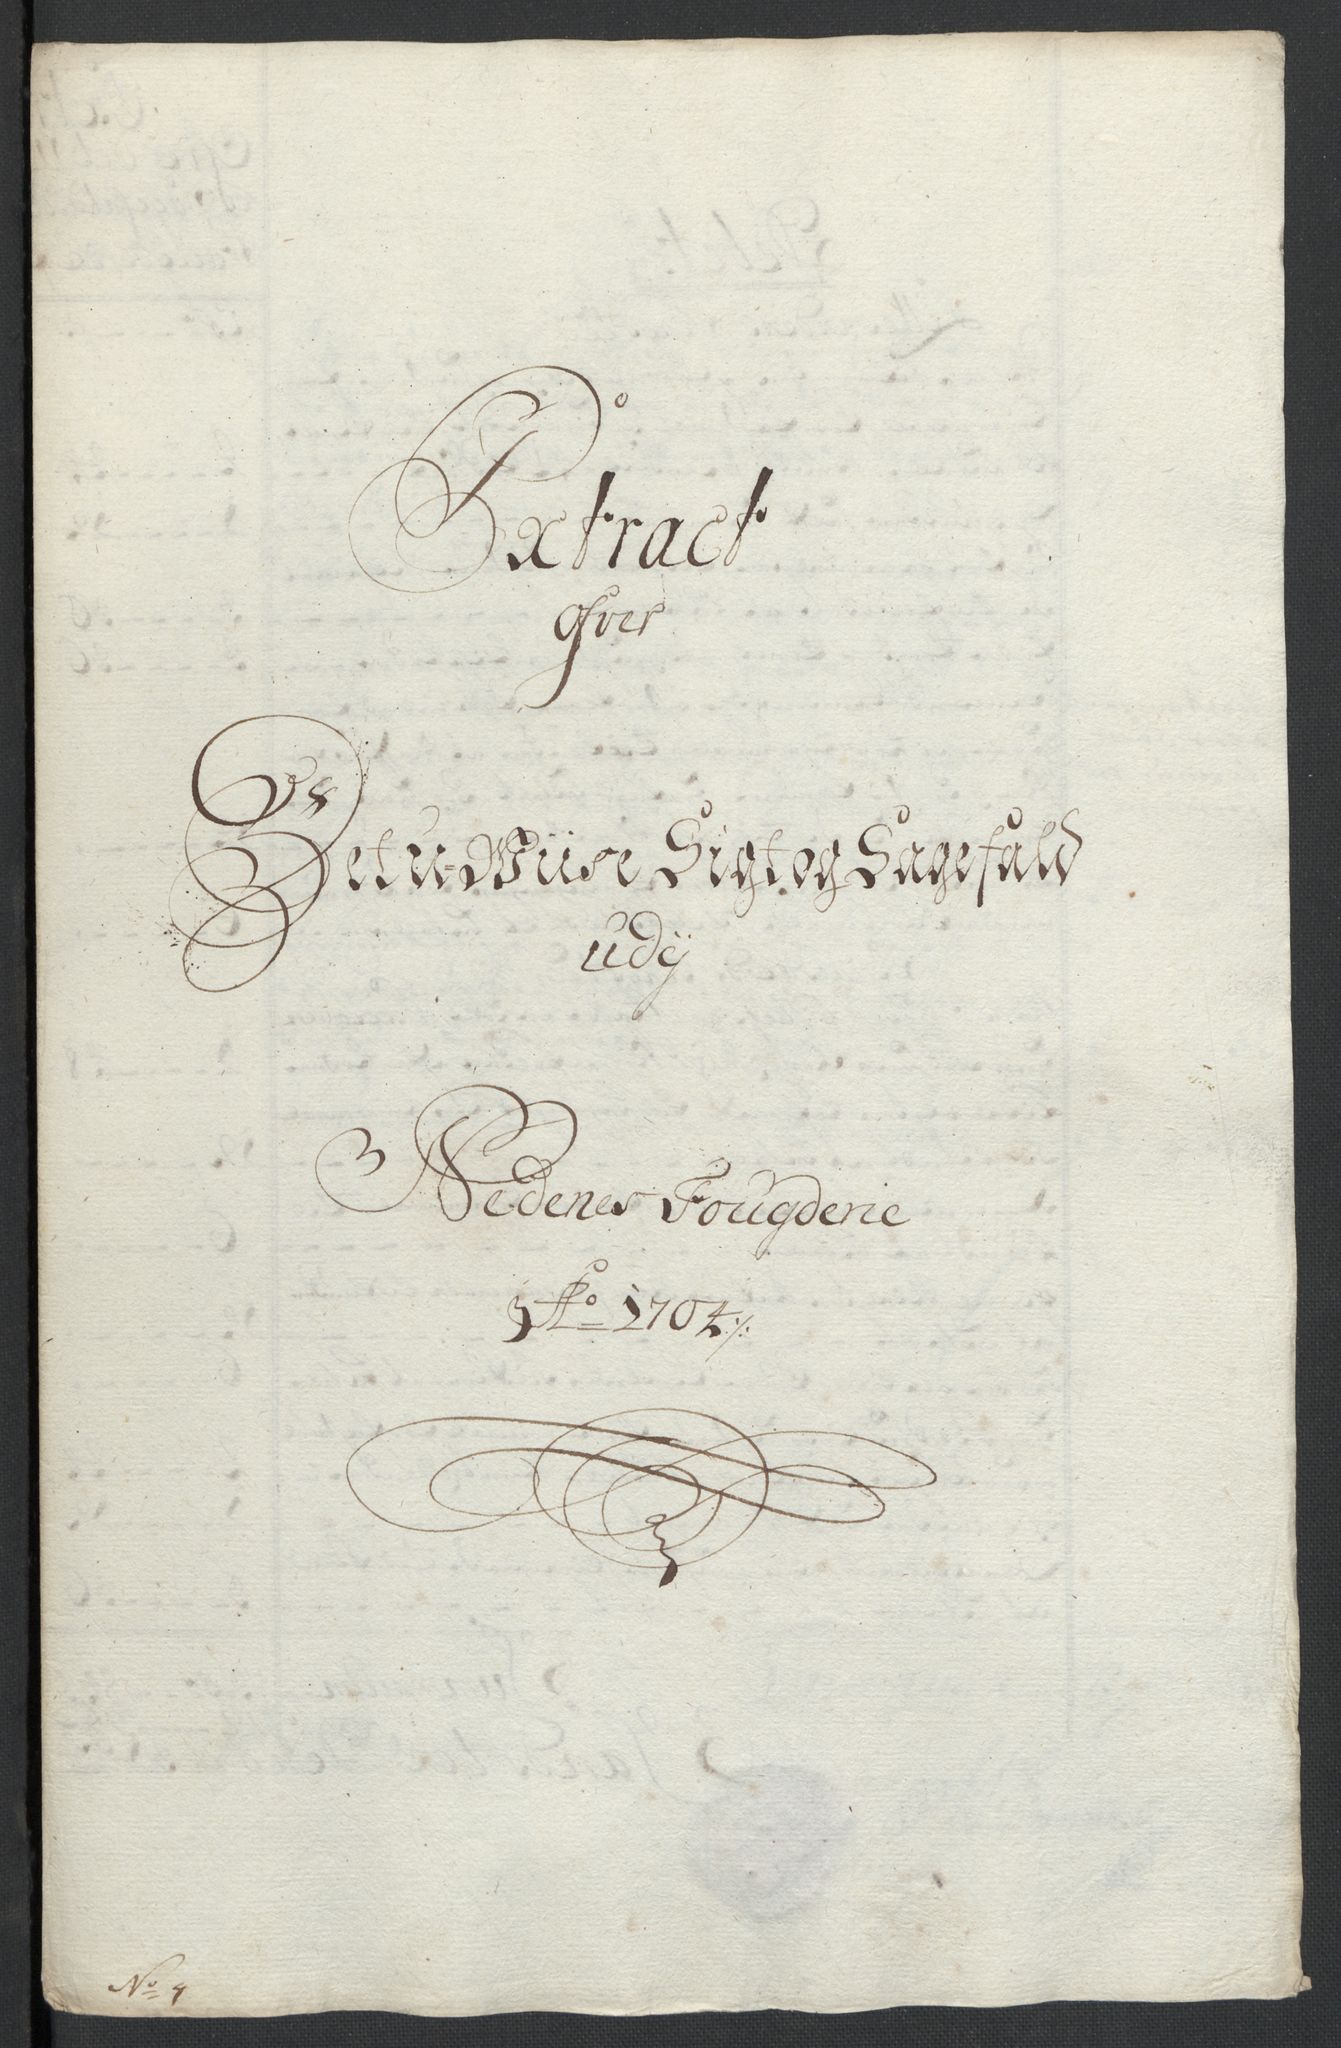 Extract
Ofver
Det u-Wiise Sigt og Sagefald
udj
Nedenes Fougderie
Ao 1704 ./.
No 4